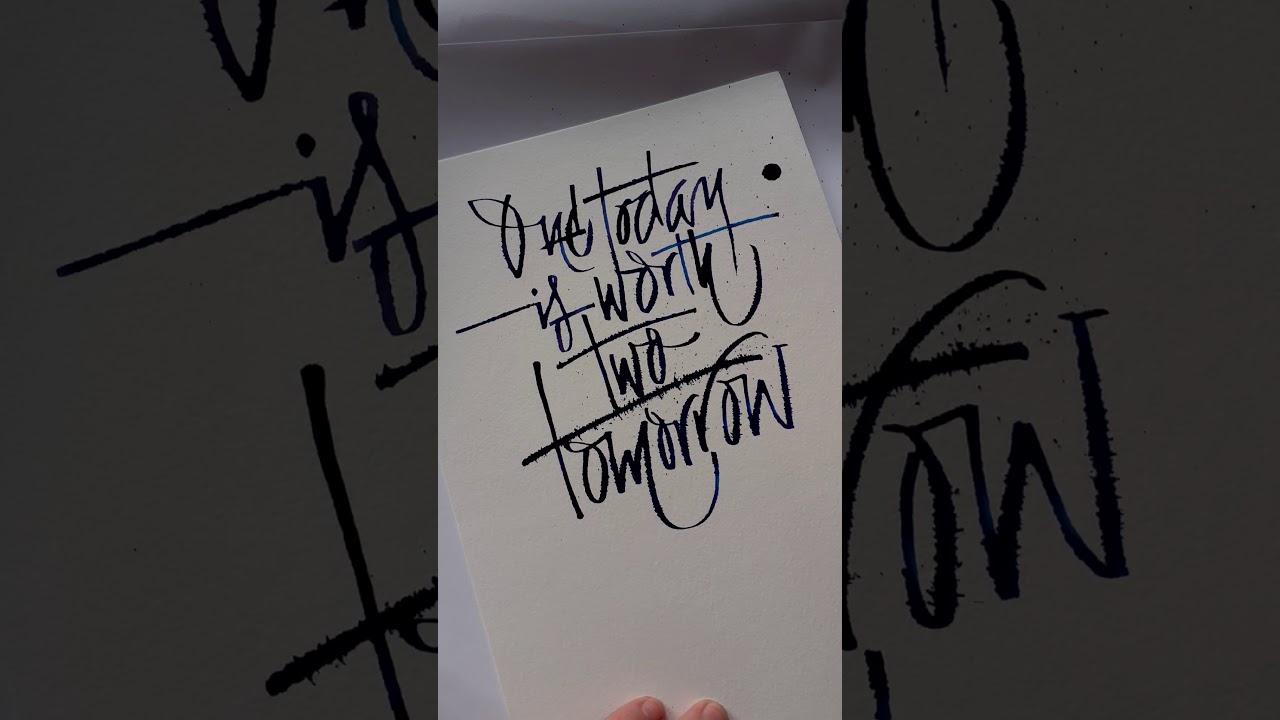 One today
is worth
two
tomorrow